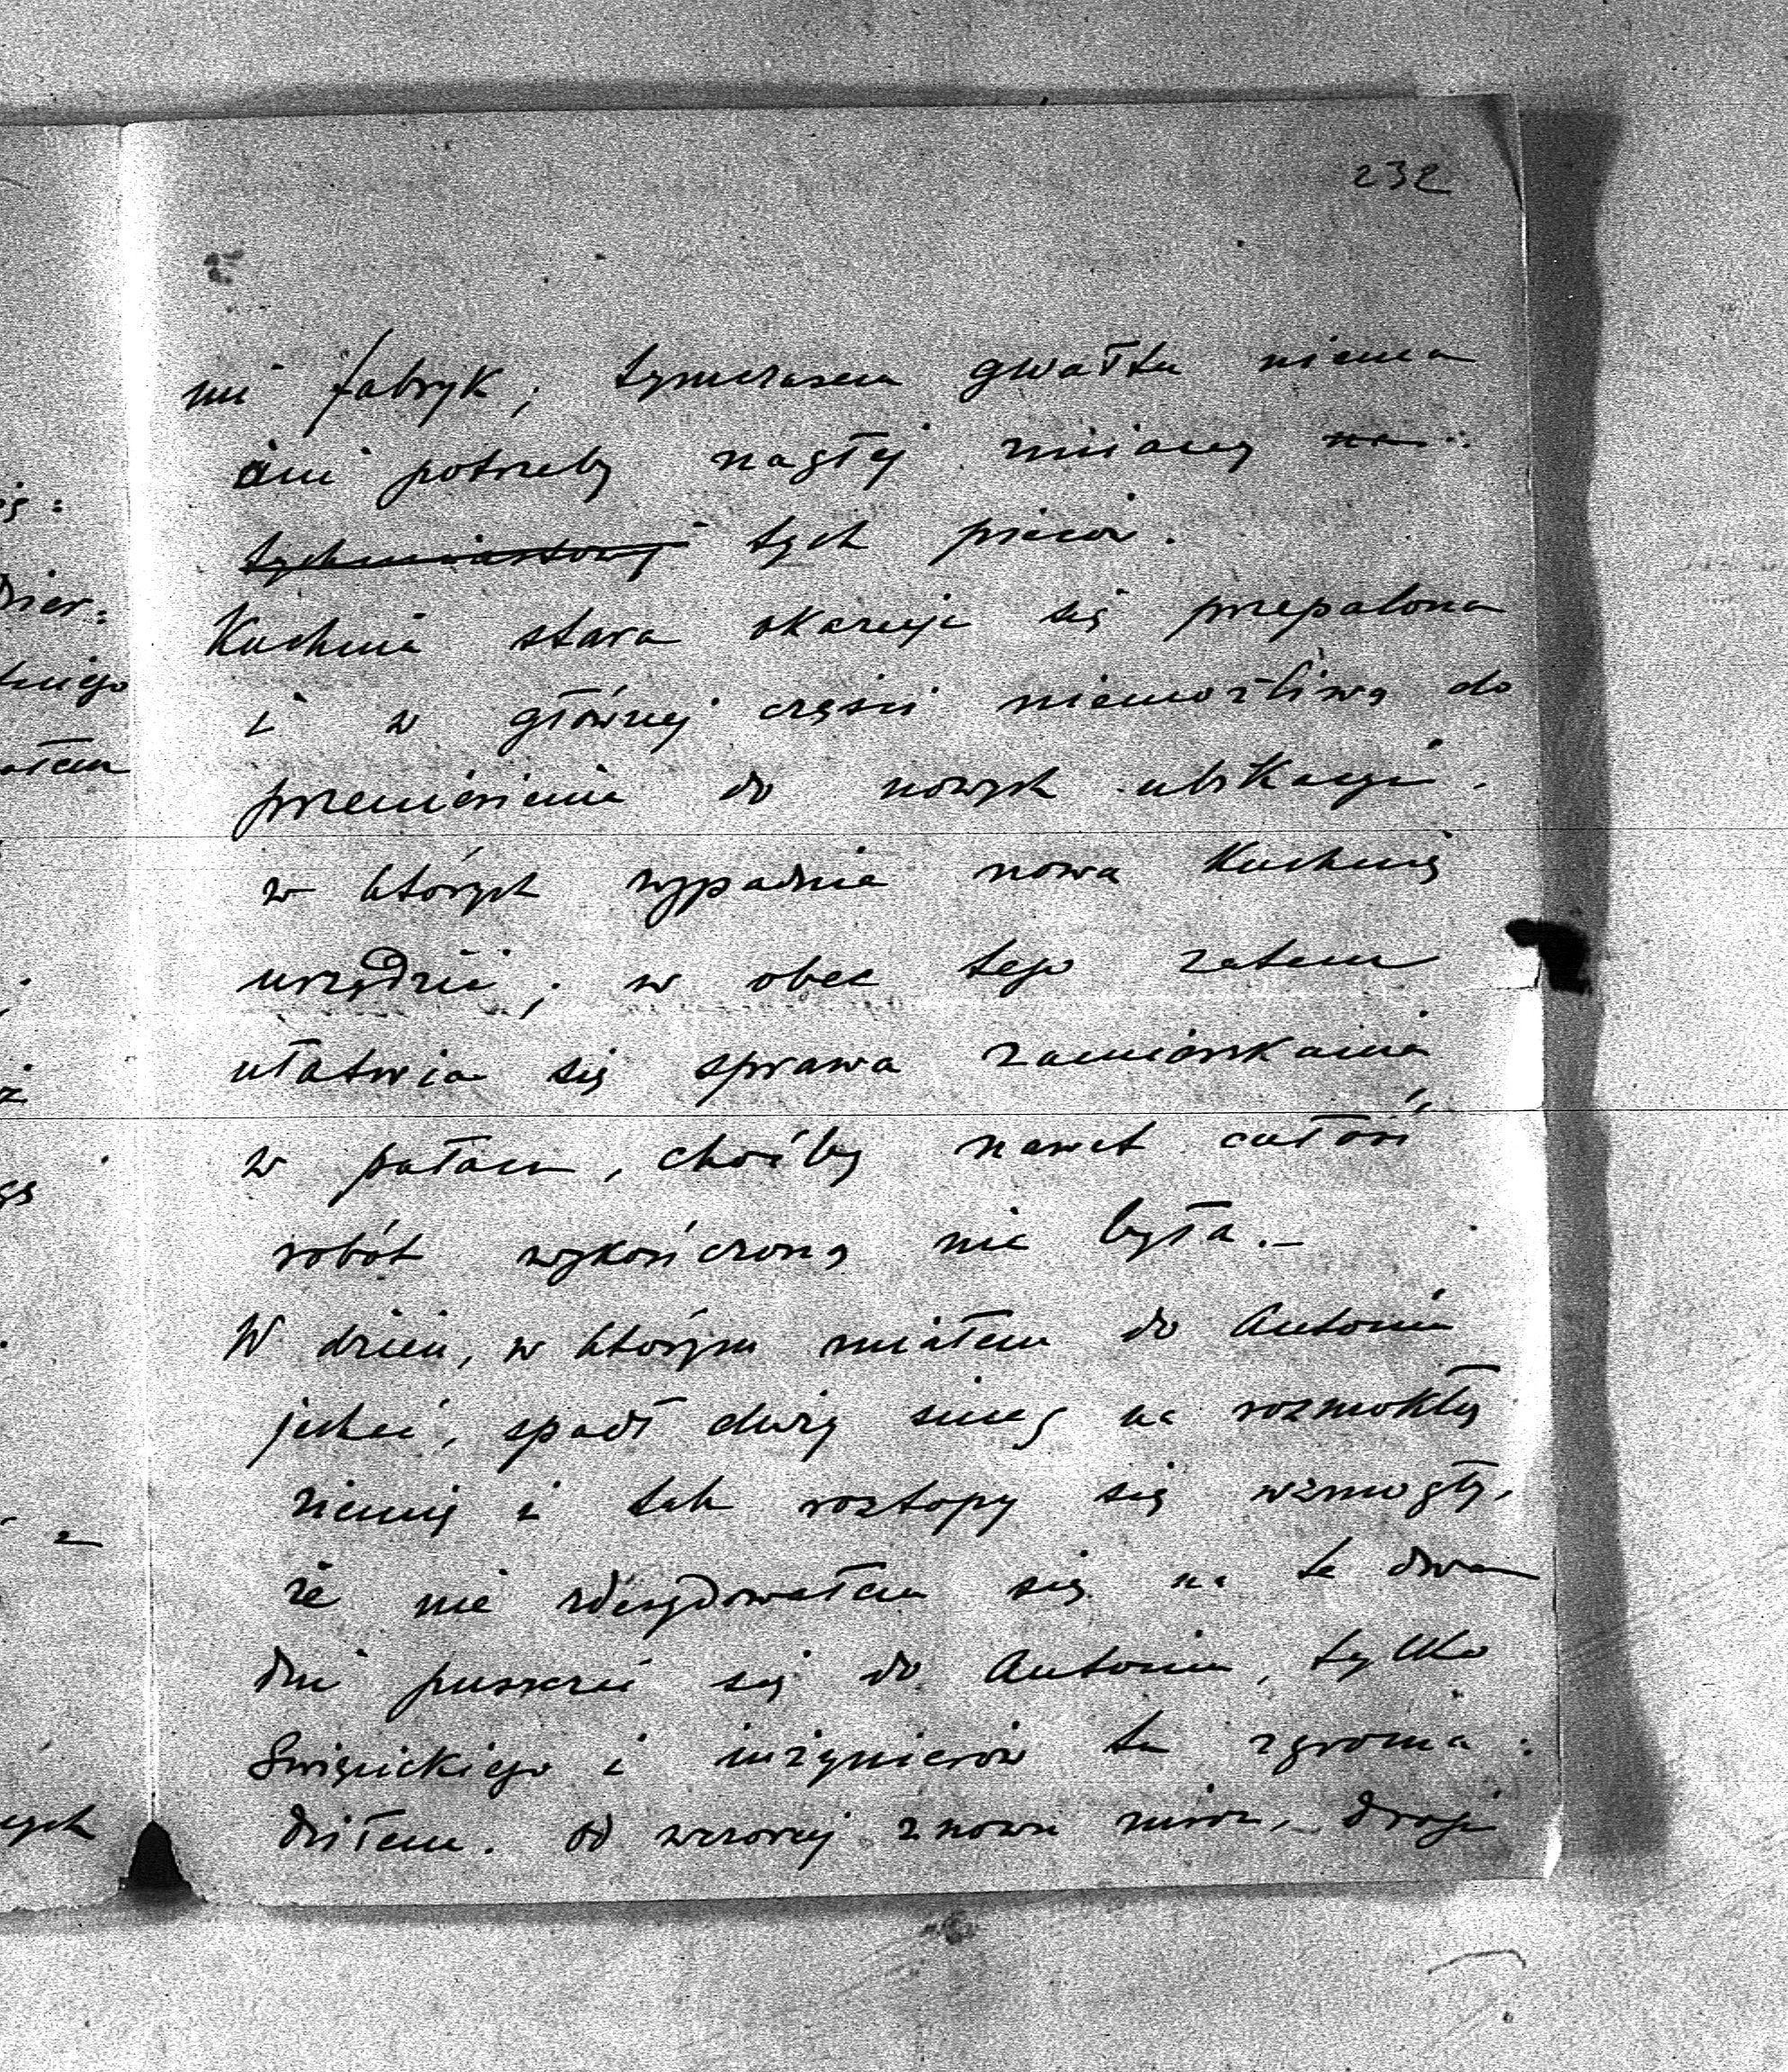 232
mi fabryk; tymczasem gwałtu niema
ani potrzeby nagłej zmiany na:
tychmiastowej tych pieców.
Kuchnia stara okazuje się przepalona
i w głównej części niemożliwą do
przeniesienia do nowych ubikacyi.
w których wypadnie nowa Kuchnię
urządzić; w obec tego zatem
ułatwia się sprawa zamieszkania
w pałacu, choćby nawet całość
robót wykończoną nie była.—
W dzień, w którym miałem do Antonin
jechać, spadł duży śnieg na rozmokłą
ziemię i tak roztopy się wzmogły,
że nie zdecydowałem się na te dwa
dni puszczać się do Antonin, tylko
Święcickiego i inżynierów tu zgroma:
dziłem. Od wczoraj znowu mróz, drogi
ię:
dzier:
tniego
ałem
ż
z
ych